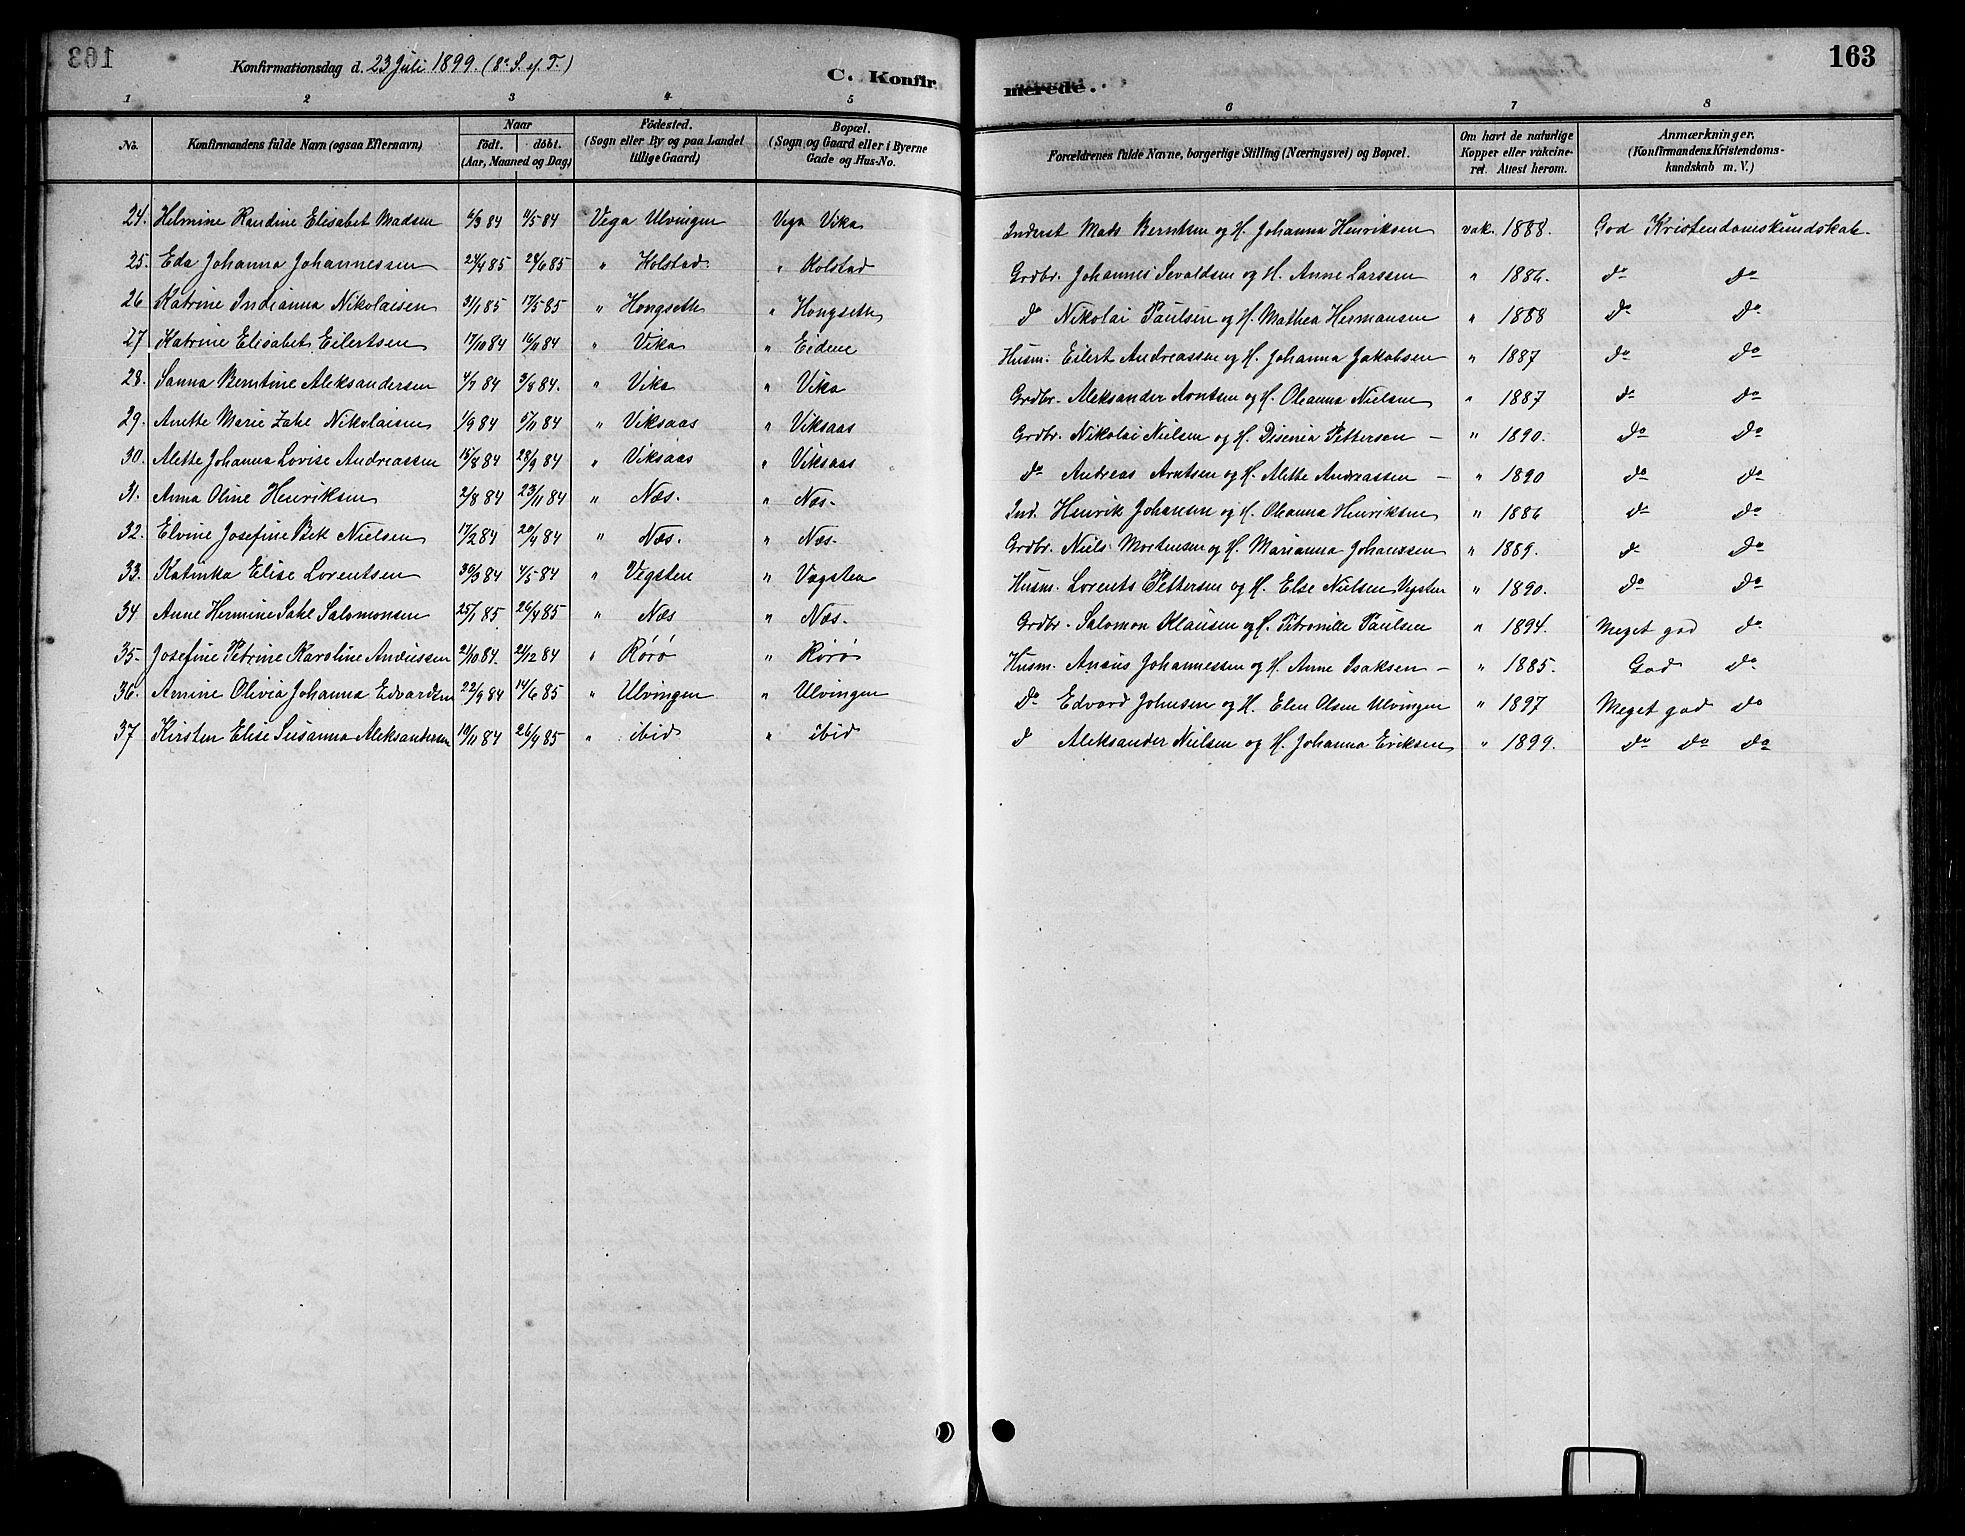 Konfirmationsdag d. 23 Juli 1899. (8de S. e/ T.)
C. Konfirmerede.
163
1 2 3 4 5 6 7 8
No. Konfirmandens fulde Navn (ogsaa Efternavn) Naar födt. döbt. (Aar, Maaned og Dag) Födested. (Sogn eller By og paa Landet tillige Gaard) Bopæl. (Sogn og Gaard eller i Byerne Gade og Hus-No. Forældrenes fulde Navne, borgerlige Stilling (Næringsvei) og Bopæl. Om havt de naturlige Kopper eller vakcineret. Attest herom. Anmærkninger. (Konfirmandens Kristendomskundskab m. V.)
24. Helmine Randine Elisabet Madsen 6/3 84 11/5 84 Vega Ulvingen Vega Vika Inderst Mats Berntsen og H. Johanna Henriksen vak. 1888. God Kristendomskundskab.
25. Eda Johanna Johannessen 24/4 85 24/6 85 " Holstad. " Holstad Grdbr. Johannes Sevaldsen og H. Anne Larssen " 1886. do do
26 Katrine Indianna Nikolaisen 31/1 85 17/5 85 " Hongseth " Hongseth do Nikolai Paulsen og H. Mathea Hermansen " 1888 do do
27 Katrine Elisabet Eilertsen 17/10 84 16/11 84 " Vika " Eidene Husm. Eilert Andreassen og H. Johanna Jakobsen " 1887 do do
28. Sanna Berntine Aleksandersen 4/7 84 3/8 84. " Vika " Vika Grdbr. Aleksander Arntsen og H. Oleanna Nielsen " 1887 do do
29. Anette Marie Zahl Nikolaisen 1/9 84 5/11 84 " Viksaas " Viksaas Grdbr. Nikolai Nielsen og H. Disenia Pettersen - " 1890. do do
30. Alette Johanna Lovise Andreassen 15/8 84 28/9 84 " Viksaas " Viksaas do Andreas Arntsen og H. Alette Andreassen - " 1890 do do
31. Anna Oline Henriksen 2/8 84 23/11 84 " Næs. " Næs - Ind. Henrik Johansen og H. Oleanna Henriksen " 1886 do do
32. Elvine Josefine Bek Nielsen 17/2 84 20/4 84 " Næs. " Næs - Grdbr. Niels Mortensen og H. Marianna Johanssen " 1889. do do
33. Katinka Elise Lorentsen 30/3 84 4/5 84 " Vegsten " Vegsten Husm. Lorents Pettersen og H. Else Nielsen Vegsten " 1890. do do
34 Anne Hermine Sahl Salomonsen 25/1 85 26/4 85 " Næs " Næs - Grdbr. Salomon Klausen og H. Petronille Paulsen " 1894. Meget god do
35. Josefine Petrine Karoline Andeussen 21/10 84. 21/12 84 " Rörö " Rörö Husm. Aneus Johannessen og H. Anne Isaksen - " 1885. God do
36. Amine Olivia Johanna Edvardsen 22/9 84 14/6 85 " Ulvingen " Ulvingen do Edvard Johnsen og H. Elen Olsen Ulvingen " 1897 Meget god do
37 Kirsten Elise Susanna Aleksandersen 10/11 84 26/4 85 " ibid " ibid d Aleksander Nielsen og H. Johanna Eriksen " 1899. do do do